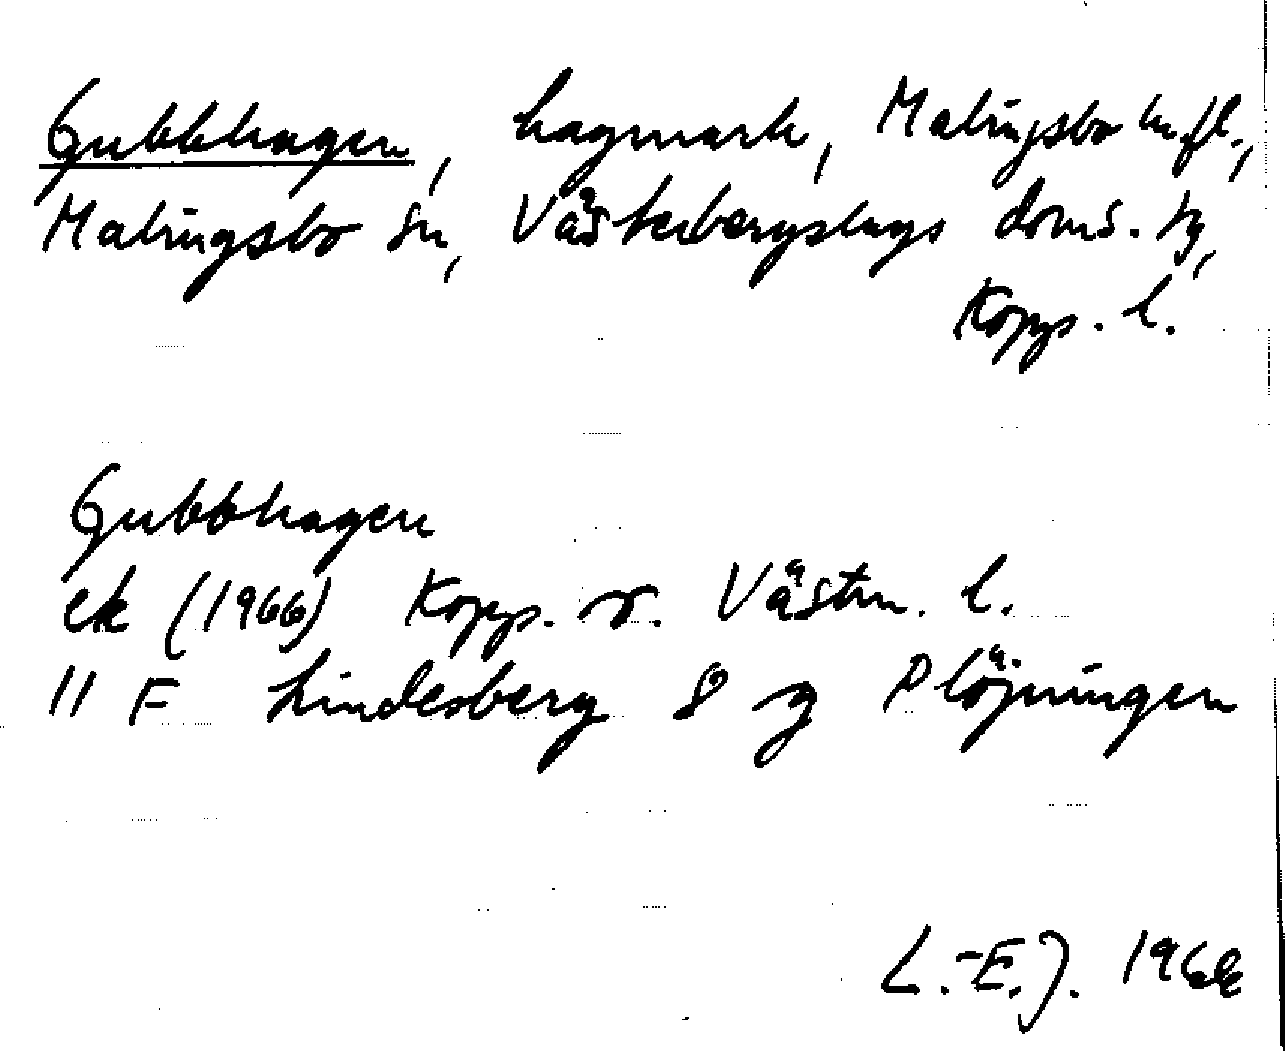 Gubbhagen, hagmark, Malingsbo kr.fl.,
Malingsbo sn, Västerbergslags doms. tg,
Kopp. l.
Gubbhagen
ek (1966) Kopp. o. Västm. l.
11 F Lindesberg 8 g Plöjningen
L.-E.J. 1968